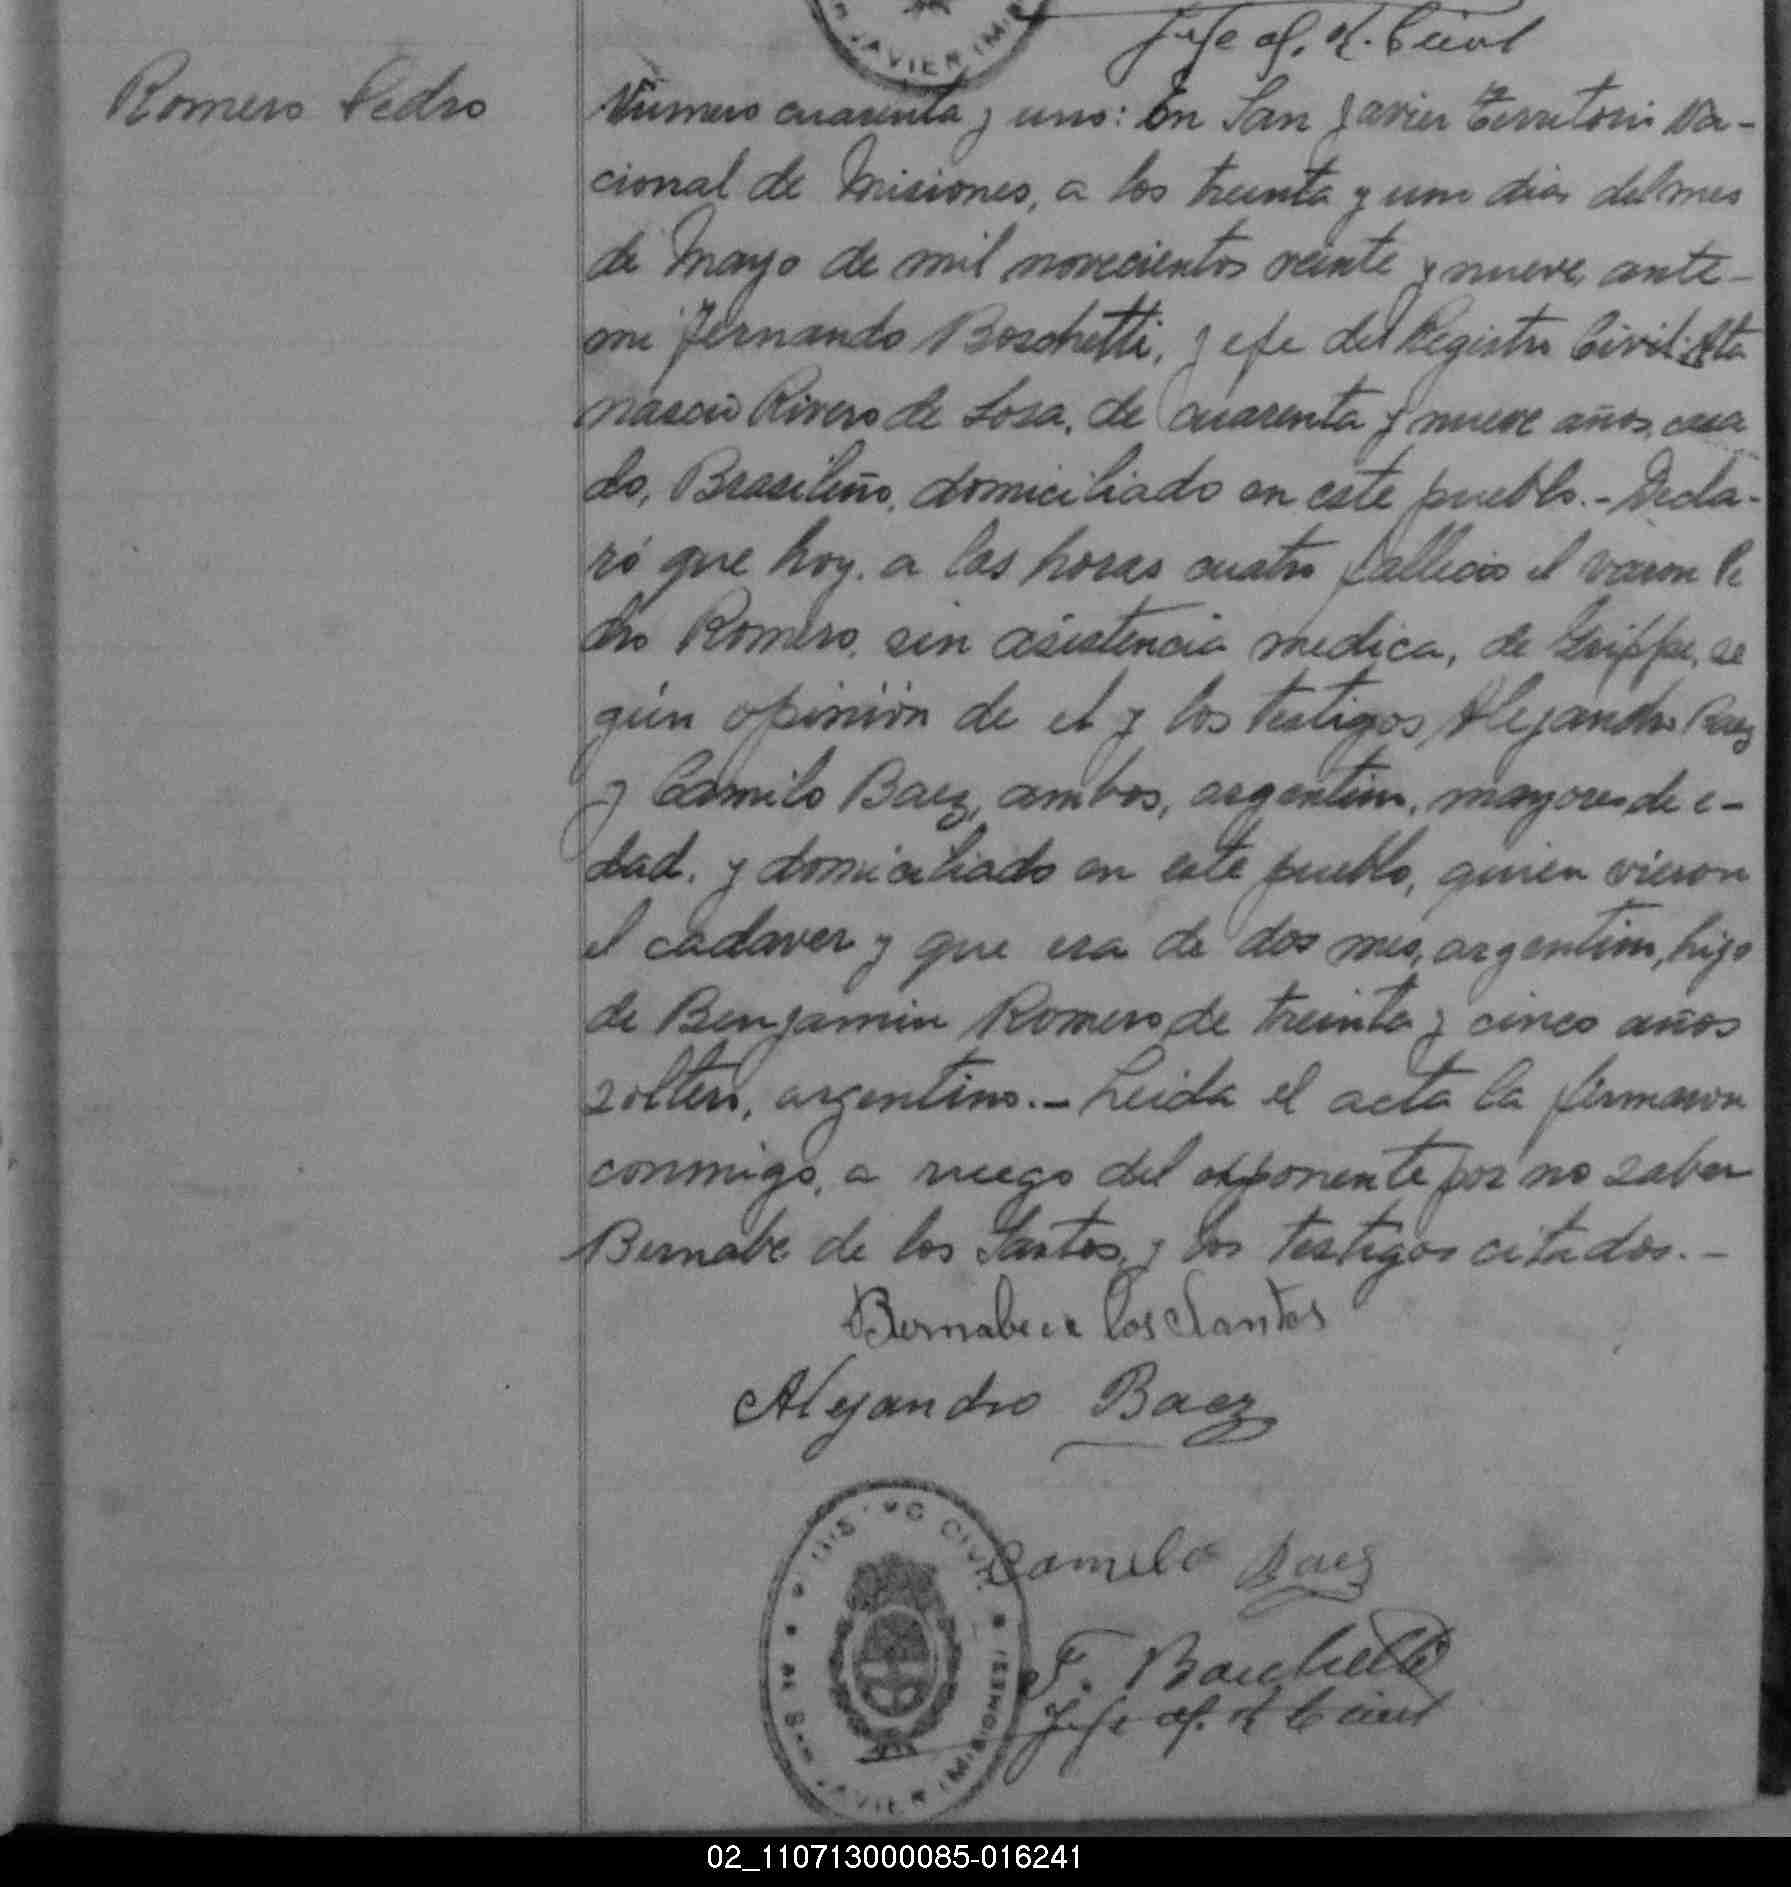 JAVIER (MIS
Jefe of. R. Civil
Romero Pedro
Numero cuarenta y uno: En San Javier Territorio Na-
cional de Misiones, a los treinta y un dias del mes
de Mayo de mil novecientos veinte y nueve, ante-
mi Fernando Boschetti, Jefe del Registro Civil. Ata
nascio Rivero de Losa, de cuarenta y nueve años, casa
do, Brasileño, domiciliado en este pueblo.- Decla-
ró que hoy, a las horas cuatro fallecio el varon Pe
dro Romero, sin asistencia medica, de Grippe, se
gún opinión de el y los testigos, Alejandro Baez
y Camilo Baez, ambos, argentino, mayores de e-
dad, y domiciliado en este pueblo, quien vieron
el cadaver y que era de dos mes, argentino, hijo
de Benjamin Romero, de treinta y cinco años
zoltero, argentino.- Leida el acta la firmaron
conmigo, a ruego del esponente por no zaber
Bernabe de los Santos, y los testigos citados.-
Bernabe de los Santos
Alejandro Baez
Camilo Baez
F. Boschetti
Jefe of. R. Civil
REGISTRO CIVIL DE SAN JAVIER (MISIONES)
02_110713000085-016241